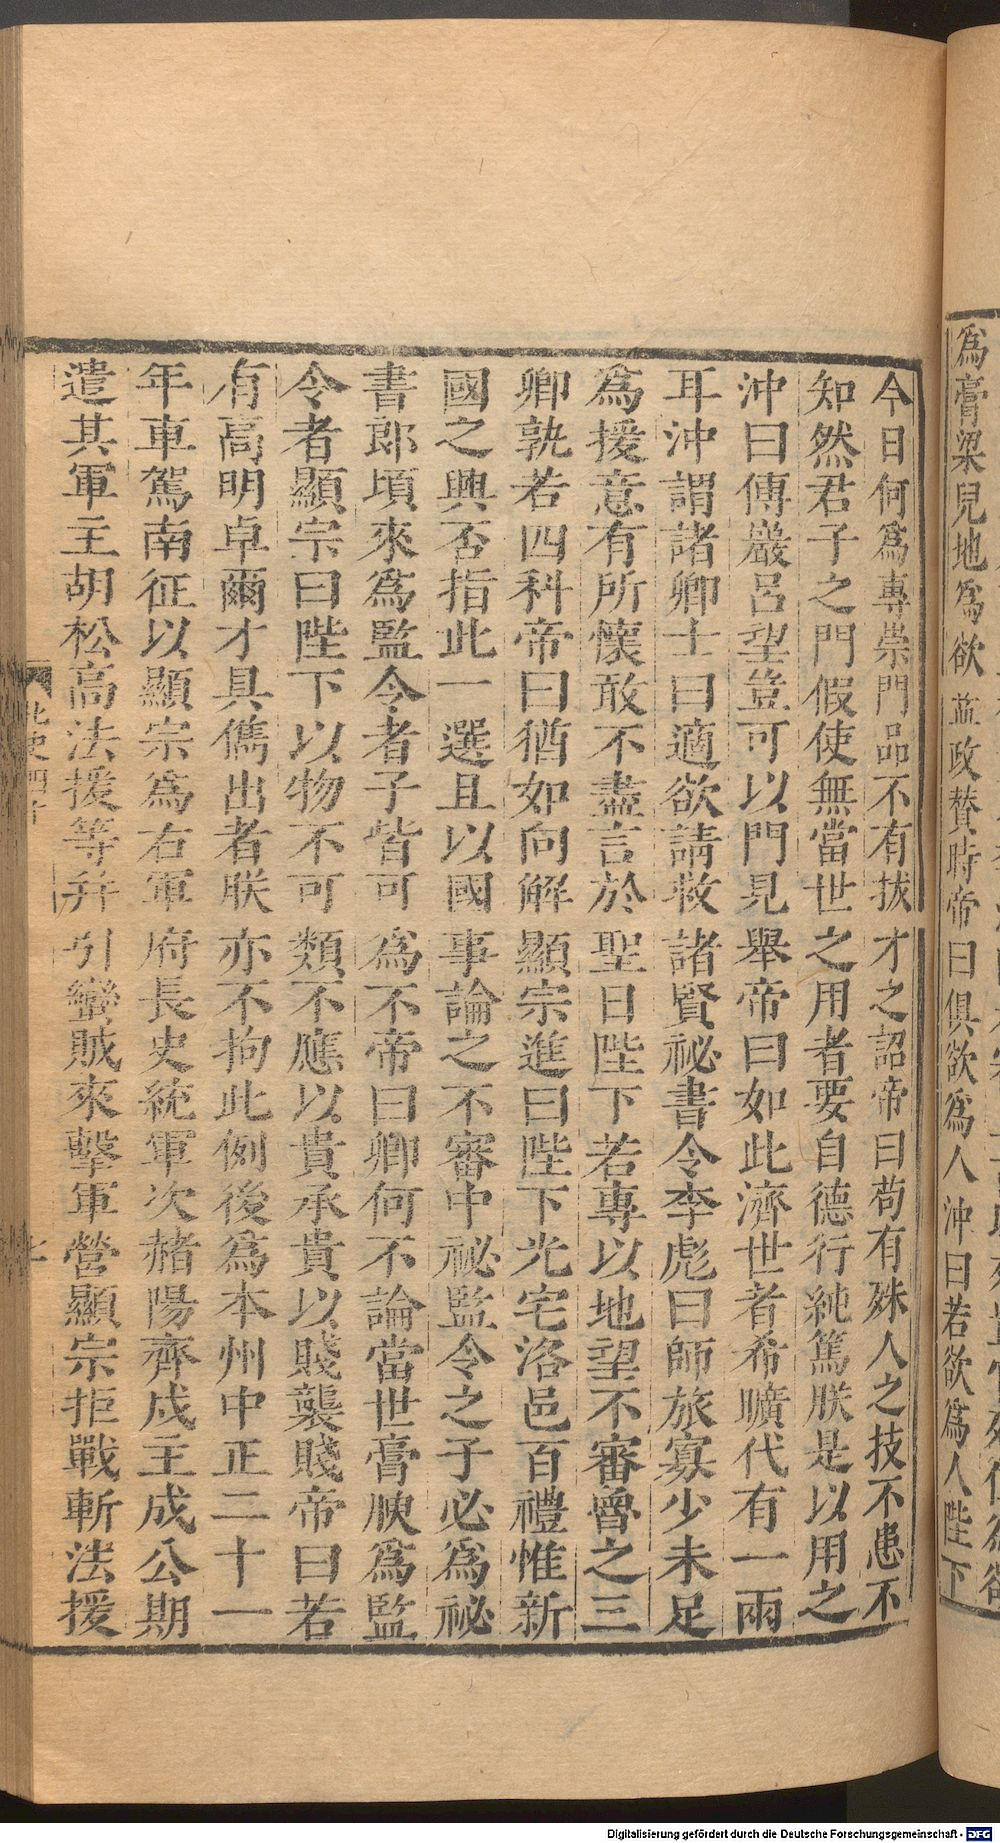 為膏梁兒地為欲益政贊時帝曰俱欲為人沖曰若欲為人陛下
今日何為專崇門品不有拔才之詔帝曰苟有殊人之技不患不
知然君子之門假使無當世之用者要自德行純篤朕是以用之
沖曰傅巖呂望豈可以門見舉帝曰如此濟世者希曠代有一兩
耳沖謂諸卿士曰適欲請救諸賢祕書令李彪曰師旅寡少未足
為援意有所懷敢不盡言於聖日陛下若專以地望不審魯之三
卿孰若四科帝曰猶如向解顯宗進曰陛下光宅洛邑百禮惟新
國之興否指此一選且以國事論之不審中祕監令之子必為祕
書郎頃來為監令者子皆可為不帝曰卿何不論當世膏腴為監
令者顯宗曰陛下以物不可類不應以貴承貴以賤襲賤帝曰若
有高明卓爾才具儁出者朕亦不拘此例後為本州中正二十一
年車駕南征以顯宗為右軍府長史統軍次赭陽齊戍主成公期
遣其軍主胡松高法援等并引蠻賊來擊軍營顯宗拒戰斬法援
北史四十
Digitalisierung gefördert durch die Deutsche Forschungsgemeinschaft - DFG